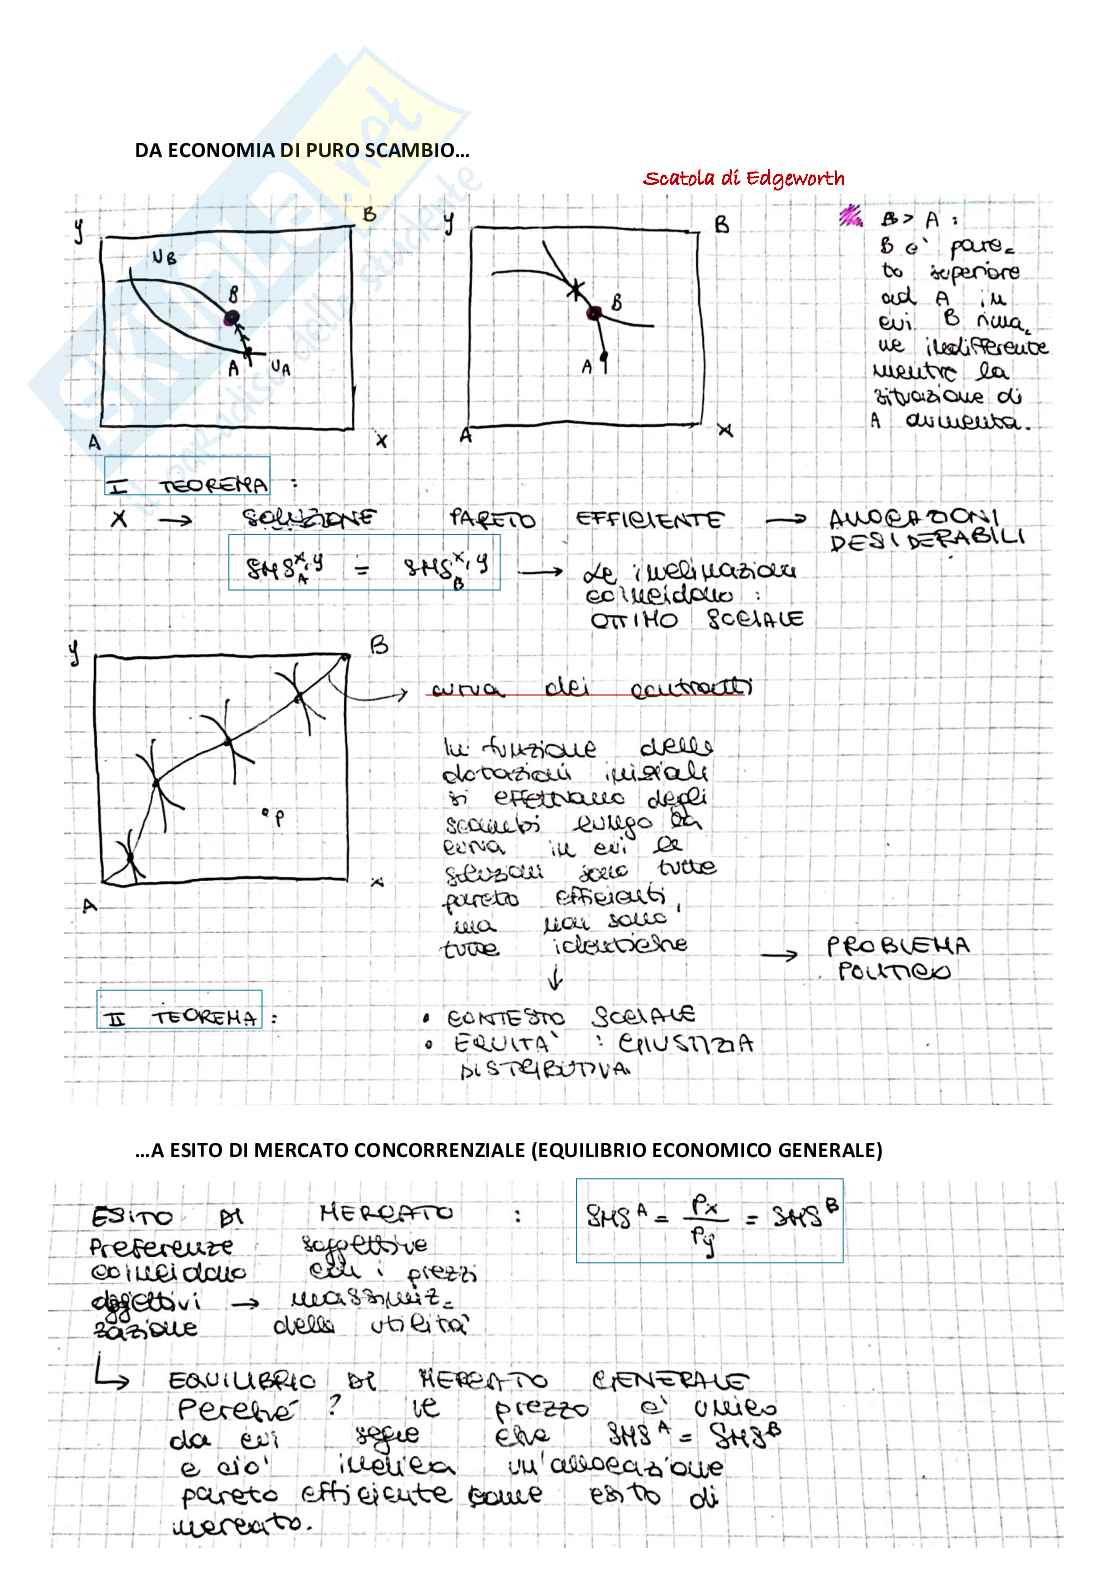 DA ECONOMIA DI PURO SCAMBIO...
Scatola di Edgeworth
SKUOLA.net
il paradiso dello studente
y
B
UB
B
A
UA
A
x
y
B
B
A
A
x
B > A :
B è pare-
to superiore
ad A in
cui B rima-
ne indifferente
mentre la
situazione di
A aumenta.
I TEOREMA :
X → SOLUZIONE PARETO EFFICIENTE → ALLOCAZIONI
DESIDERABILI
SMS A x,y = SMS B x,y → Le inclinazioni
coincidono :
OTTIMO SOCIALE
y
B
P
A
x
→ curva dei contratti
In funzione delle
dotazioni iniziali
si effettuano degli
scambi lungo la
curva in cui le
soluzioni sono tutte
pareto efficienti,
ma non sono
tutte identiche → PROBLEMA
POLITICO
↓
II TEOREMA :
• CONTESTO SOCIALE
• EQUITA' : GIUSTIZIA
DISTRIBUTIVA
...A ESITO DI MERCATO CONCORRENZIALE (EQUILIBRIO ECONOMICO GENERALE)
ESITO DI MERCATO : SMS^A = Px/Py = SMS^B
Preferenze soggettive
coincidono con i prezzi
oggettivi → massimiz-
zazione della utilità
↳ EQUILIBRIO DI MERCATO GENERALE
Perché? Il prezzo è unico
da cui segue che SMS^A = SMS^B
e ciò indica un'allocazione
pareto efficiente come esito di
mercato.